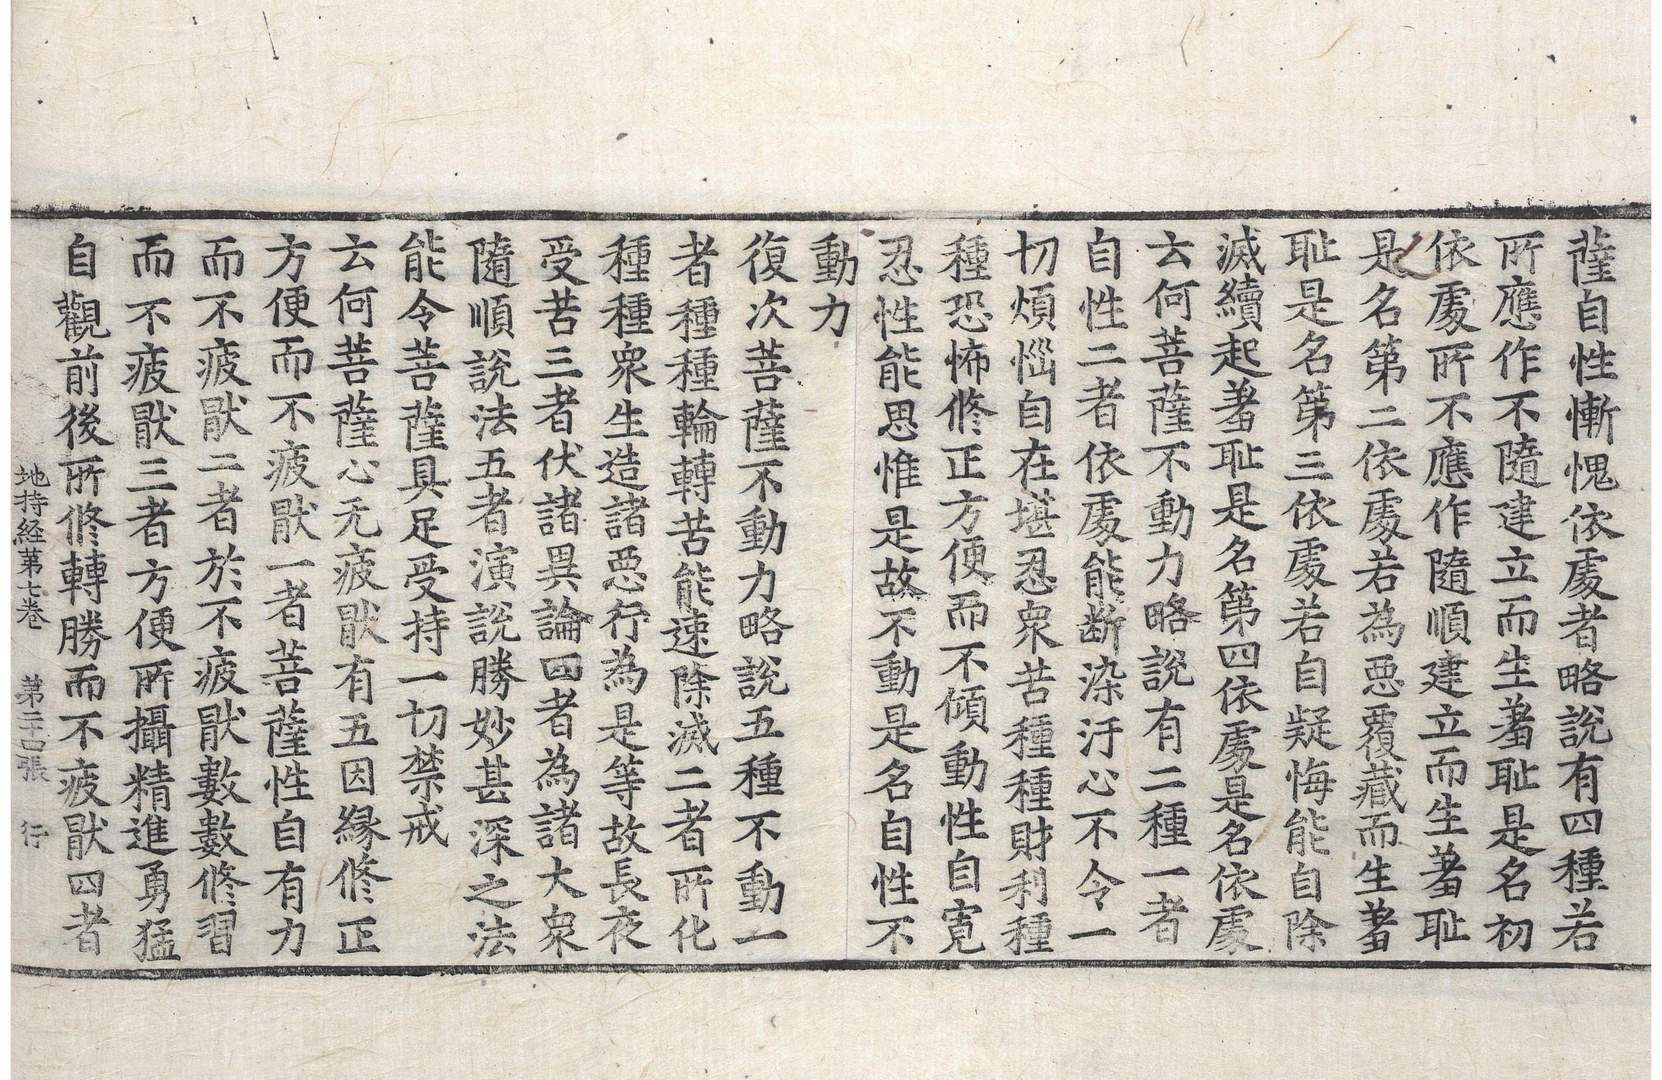 薩自性慚愧依處者略說有四種若
所應作不隨建立而生羞耻是名初
依處所不應作隨順建立而生羞耻
是名第二依處若為惡覆藏而生羞
耻是名第三依處若自疑悔能自除
滅續起羞耻是名第四依處是名依處
云何菩薩不動力略說有二種一者
自性二者依處能断染汙心不令一
切煩惱自在堪忍衆苦種種財利種
種恐怖修正方便而不傾動性自寬
忍性能思惟是故不動是名自性不
動力
復次菩薩不動力略說五種不動一
者種種輪轉苦能速除滅二者所化
種種衆生造諸惡行為是等故長夜
受苦三者伏諸異論四者為諸大衆
隨順說法五者演說勝妙甚深之法
能令菩薩具足受持一切禁戒
云何菩薩心无疲猒有五因緣修正
方便而不疲猒一者菩薩性自有力
而不疲猒二者於不疲猒數數修習
而不疲猒三者方便所攝精進勇猛
自觀前後所修轉勝而不疲猒四者
地持経第七卷 第二十四張 行